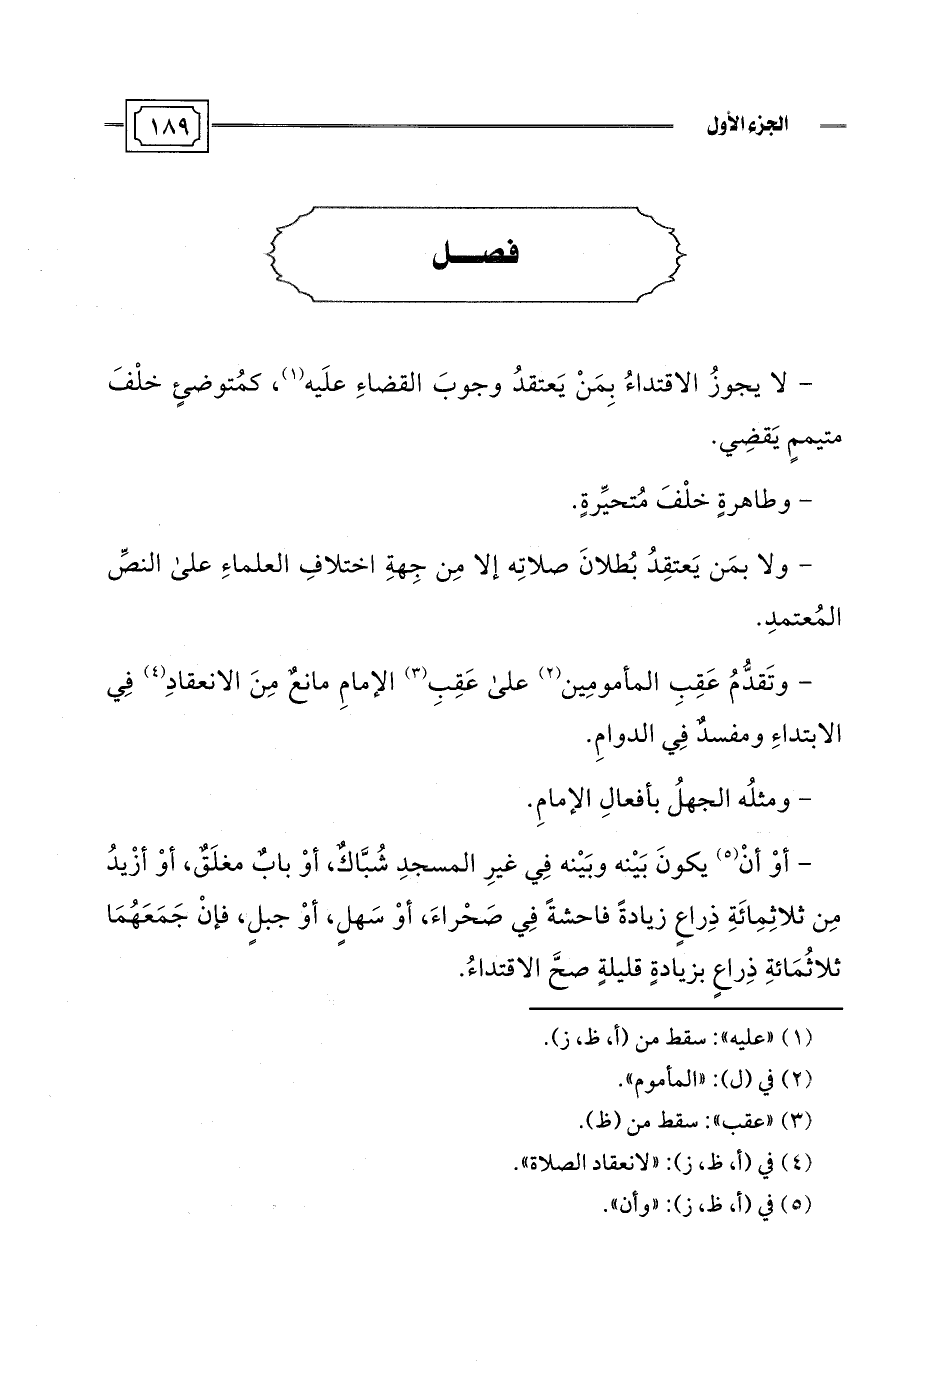 الجزء الأول
١٨٩
فصـــل
- لا يجوزُ الاقتداءُ بِمَنْ يَعتقدُ وجوبَ القضاءِ علَيه(١)، كمُتوضئٍ خلْفَ
متيممٍ يَقضِي.
- وطاهرةٍ خلْفَ مُتحيِّرةٍ.
- ولا بمَن يَعتقِدُ بُطلانَ صلاتِه إلا مِن جِهةِ اختلافِ العلماءِ علىٰ النصِّ
المُعتمدِ.
- وتَقدُّمُ عَقِبِ المأمومِين(٢) علىٰ عَقِبِ(٣) الإمامِ مانعٌ مِنَ الانعقادِ(٤) فِي
الابتداءِ ومفسدٌ فِي الدوامِ.
- ومثلُه الجهلُ بأفعالِ الإمامِ.
- أوْ أنْ(٥) يكونَ بَيْنه وبَيْنه فِي غيرِ المسجدِ شُبَّاكٌ، أوْ بابٌ مغلَقٌ، أوْ أزْيدُ
مِن ثلاثِمِائَةِ ذِراعٍ زيادةً فاحشةً فِي صَحْراءَ، أوْ سَهلٍ، أوْ جبلٍ، فإنْ جَمَعَهُمَا
ثلاثُمَائةِ ذِراعٍ بزيادةٍ قليلةٍ صحَّ الاقتداءُ.
(١) «عليه»: سقط من (أ، ظ، ز).
(٢) في (ل): «المأموم».
(٣) «عقب»: سقط من (ظ).
(٤) في (أ، ظ، ز): «لانعقاد الصلاة».
(٥) في (أ، ظ، ز): «وأن».